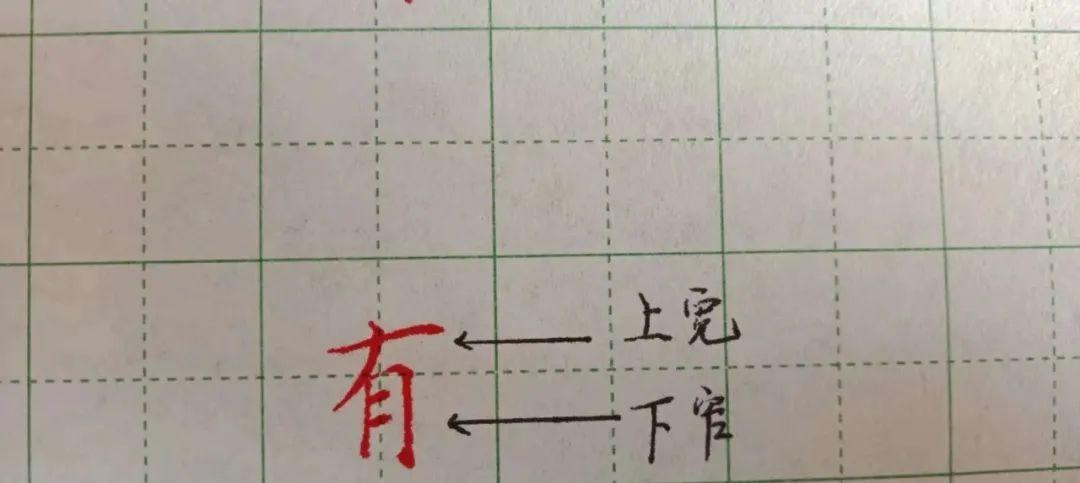 有
上宽
下窄